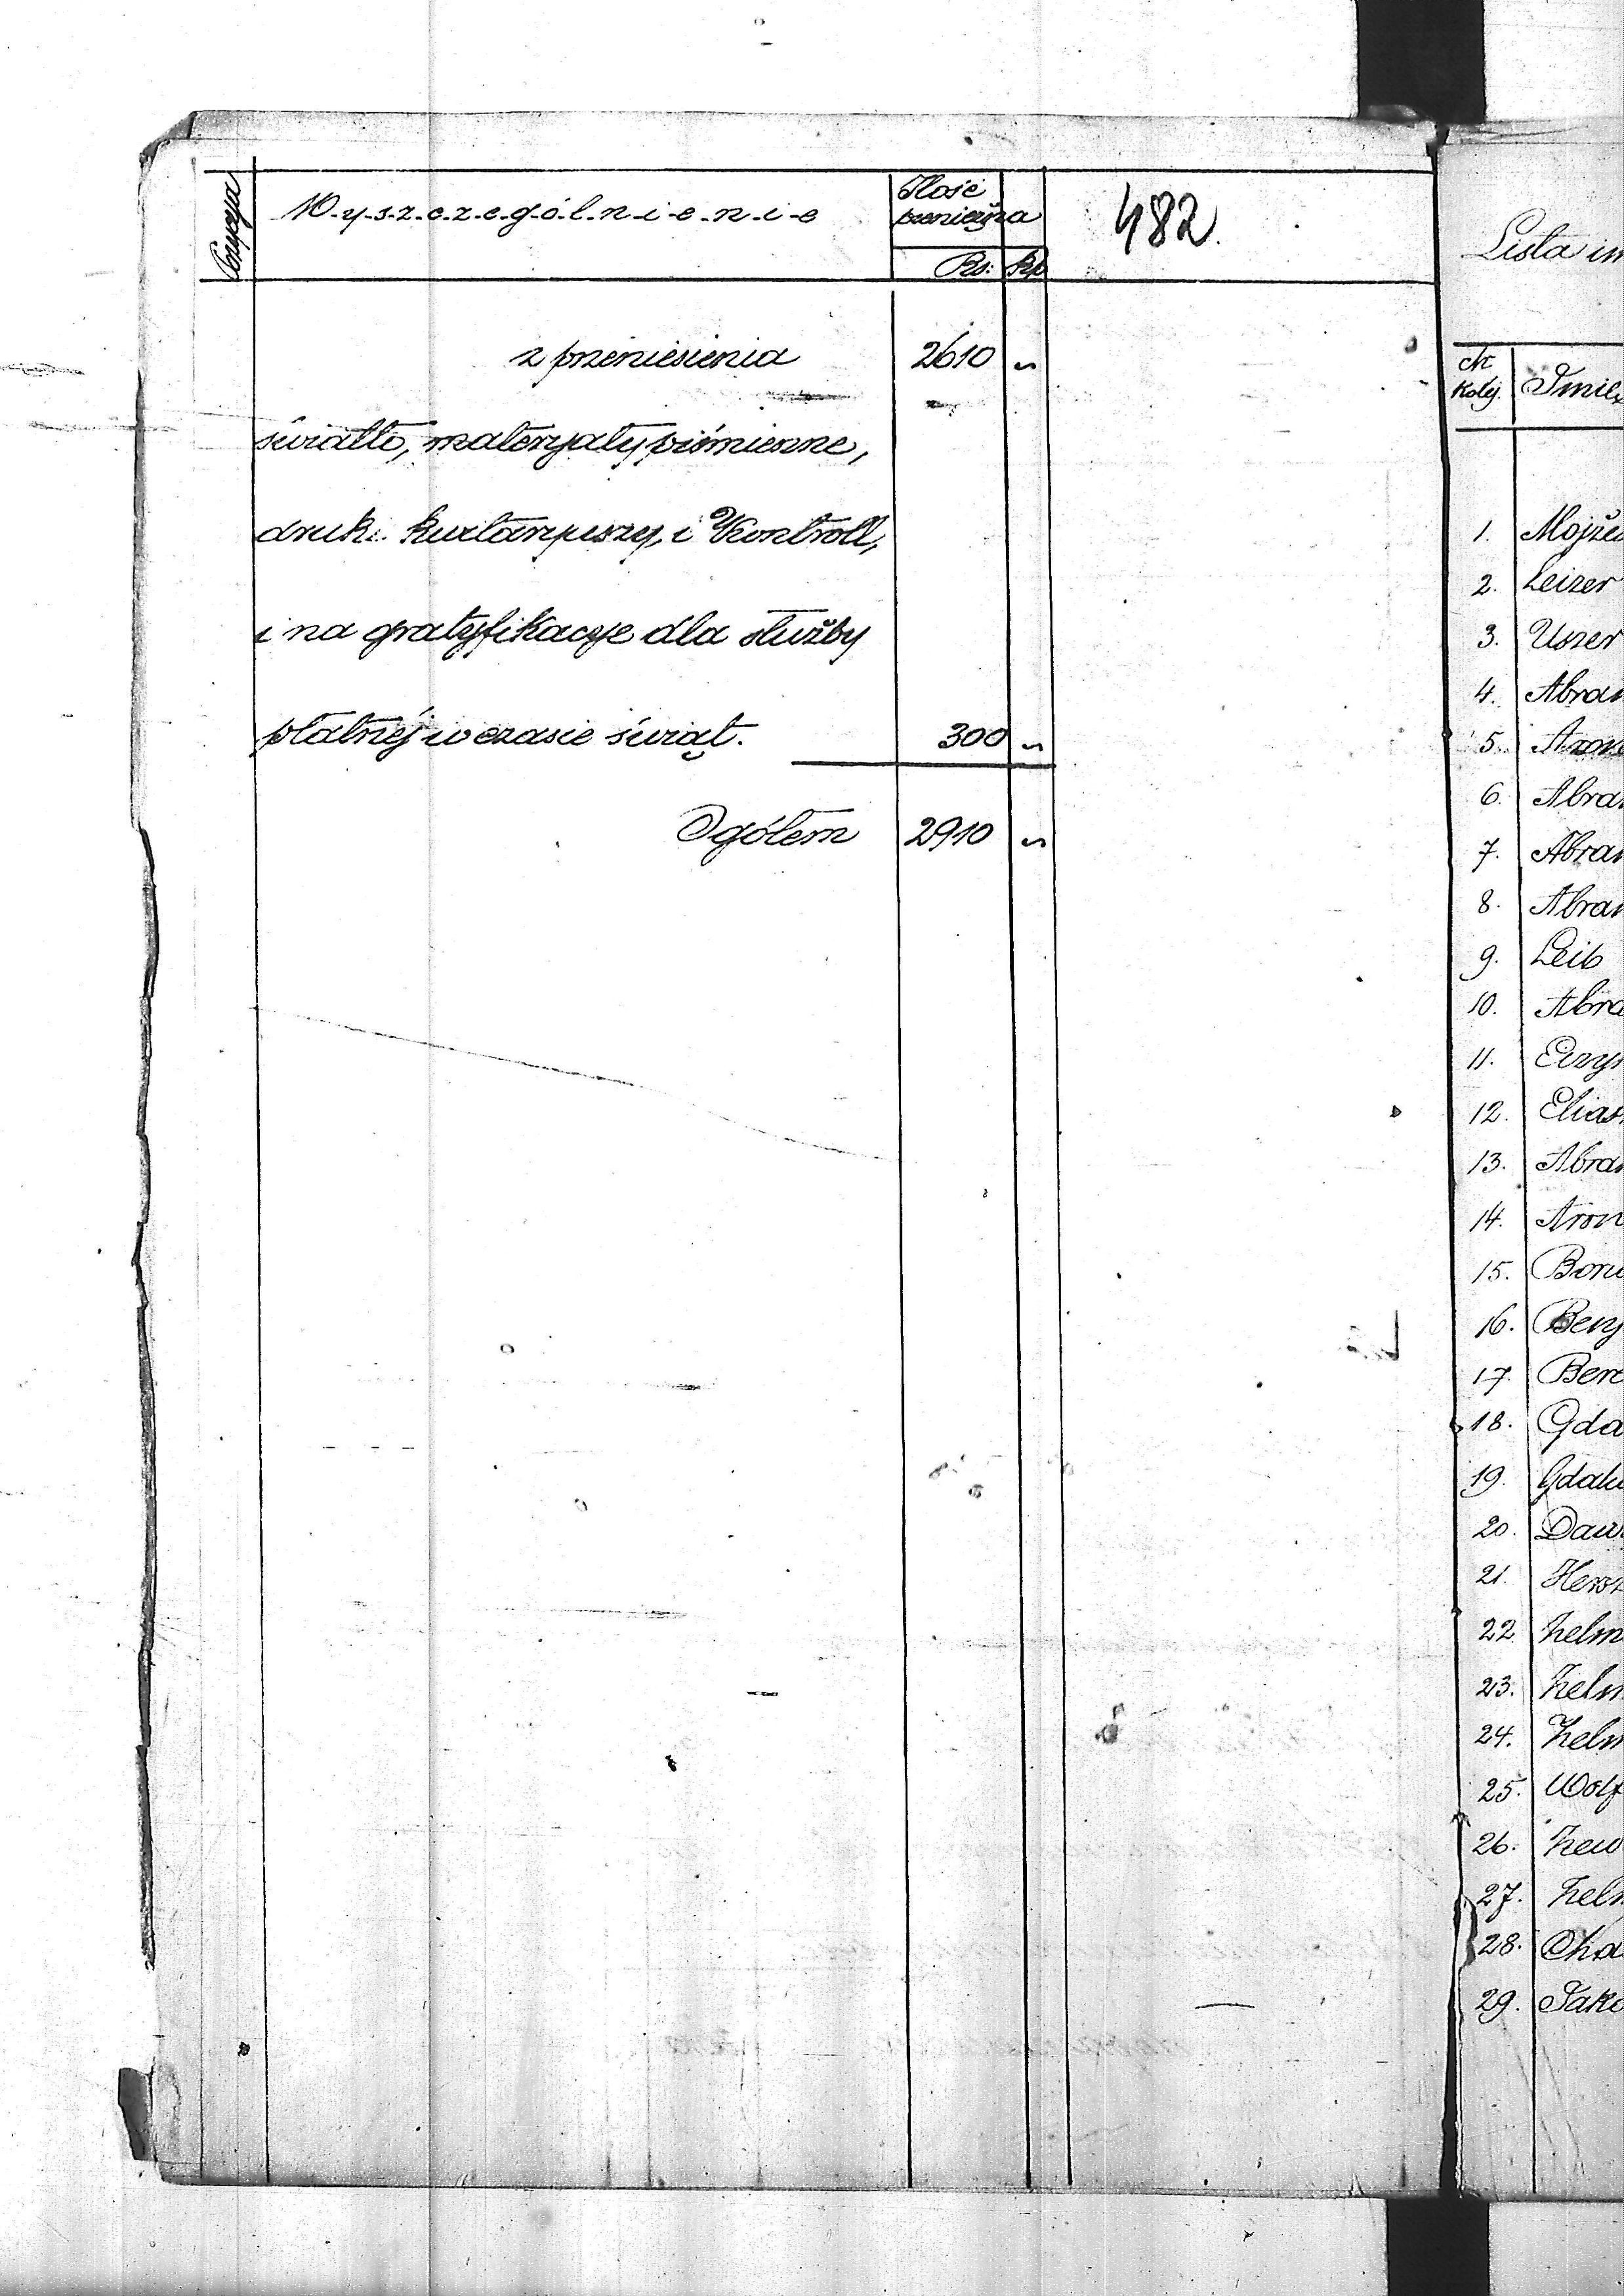 Pozycya
W-y-s-z-c-z-e-g-ó-l-n-i-e-n-i-e
Ilość
pieniężna
Rs: Kp
482.
z przeniesienia 2610 "
światło, materyały piśmienne,
druk: kwitaryuszy, i Kontroll,
i na gratyfikacye dla służby
płatnéj w czasie świąt. 300 "
Ogółem 2910 "
Lista im
№
Kolej. Imie
1. Mojże
2. Leizer
3. Uszer
4. Abra
5. Aron
6. Abra
7. Abra
8. Abra
9. Leib
10. Abra
11.
12. Elias
13. Abra
14. Aron
15. Boru
16. Benj
17. Bere
18. Gda
19. Gdal
20. Daw
21. Hersz
22. Zelm
23. Zelm
24. Zelm
25. Wolf
26. Zew
27. Zelm
28. Cha
29. Jako